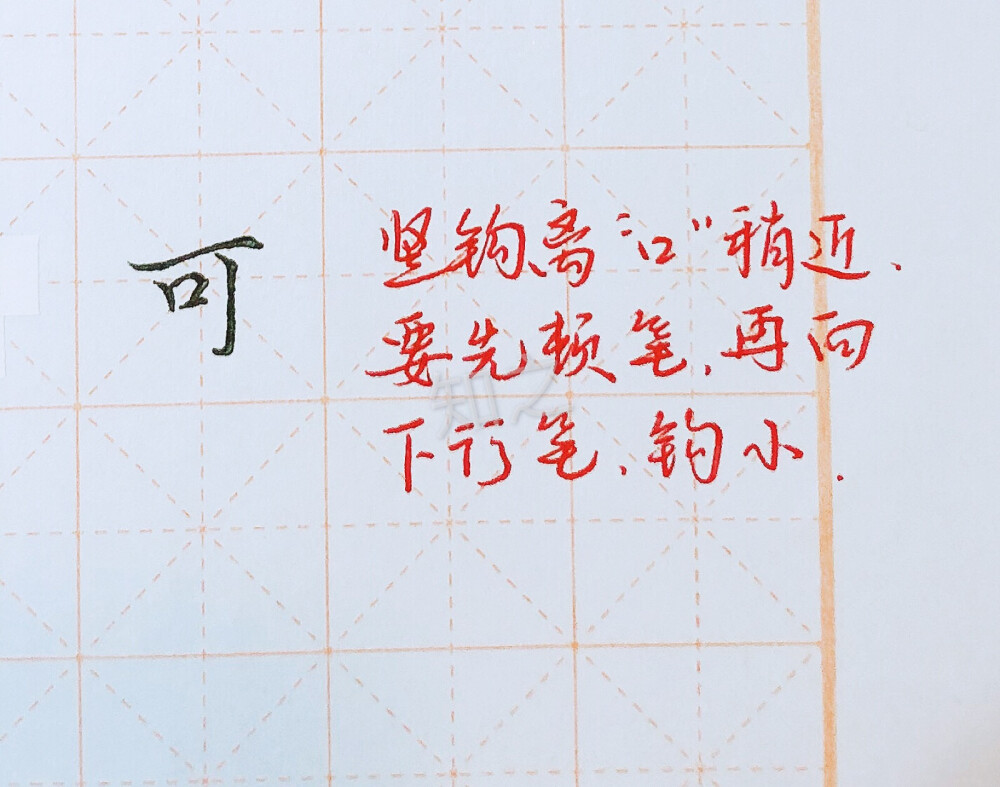 可
竖钩离“口”稍近.
要先顿笔,再向
下行笔,钩小.
知之